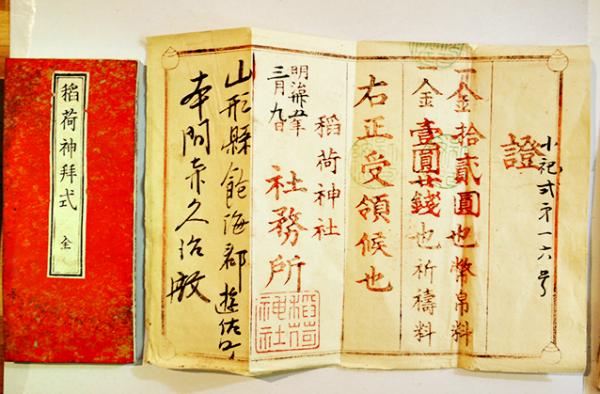 證
一金拾貳圓也幣帛料
一金壹圓廿錢也祈禱料
右正受領候也
稲荷神社
社務所
明治卅五年
三月九日
稻荷神社
山形縣飽海郡遊佐町
本間久治殿
稻荷神拜式 全